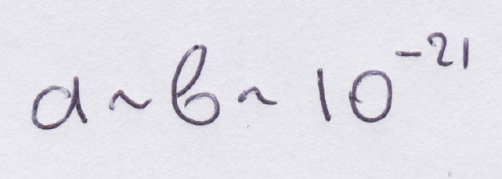 a ~ b ~ 10⁻²¹